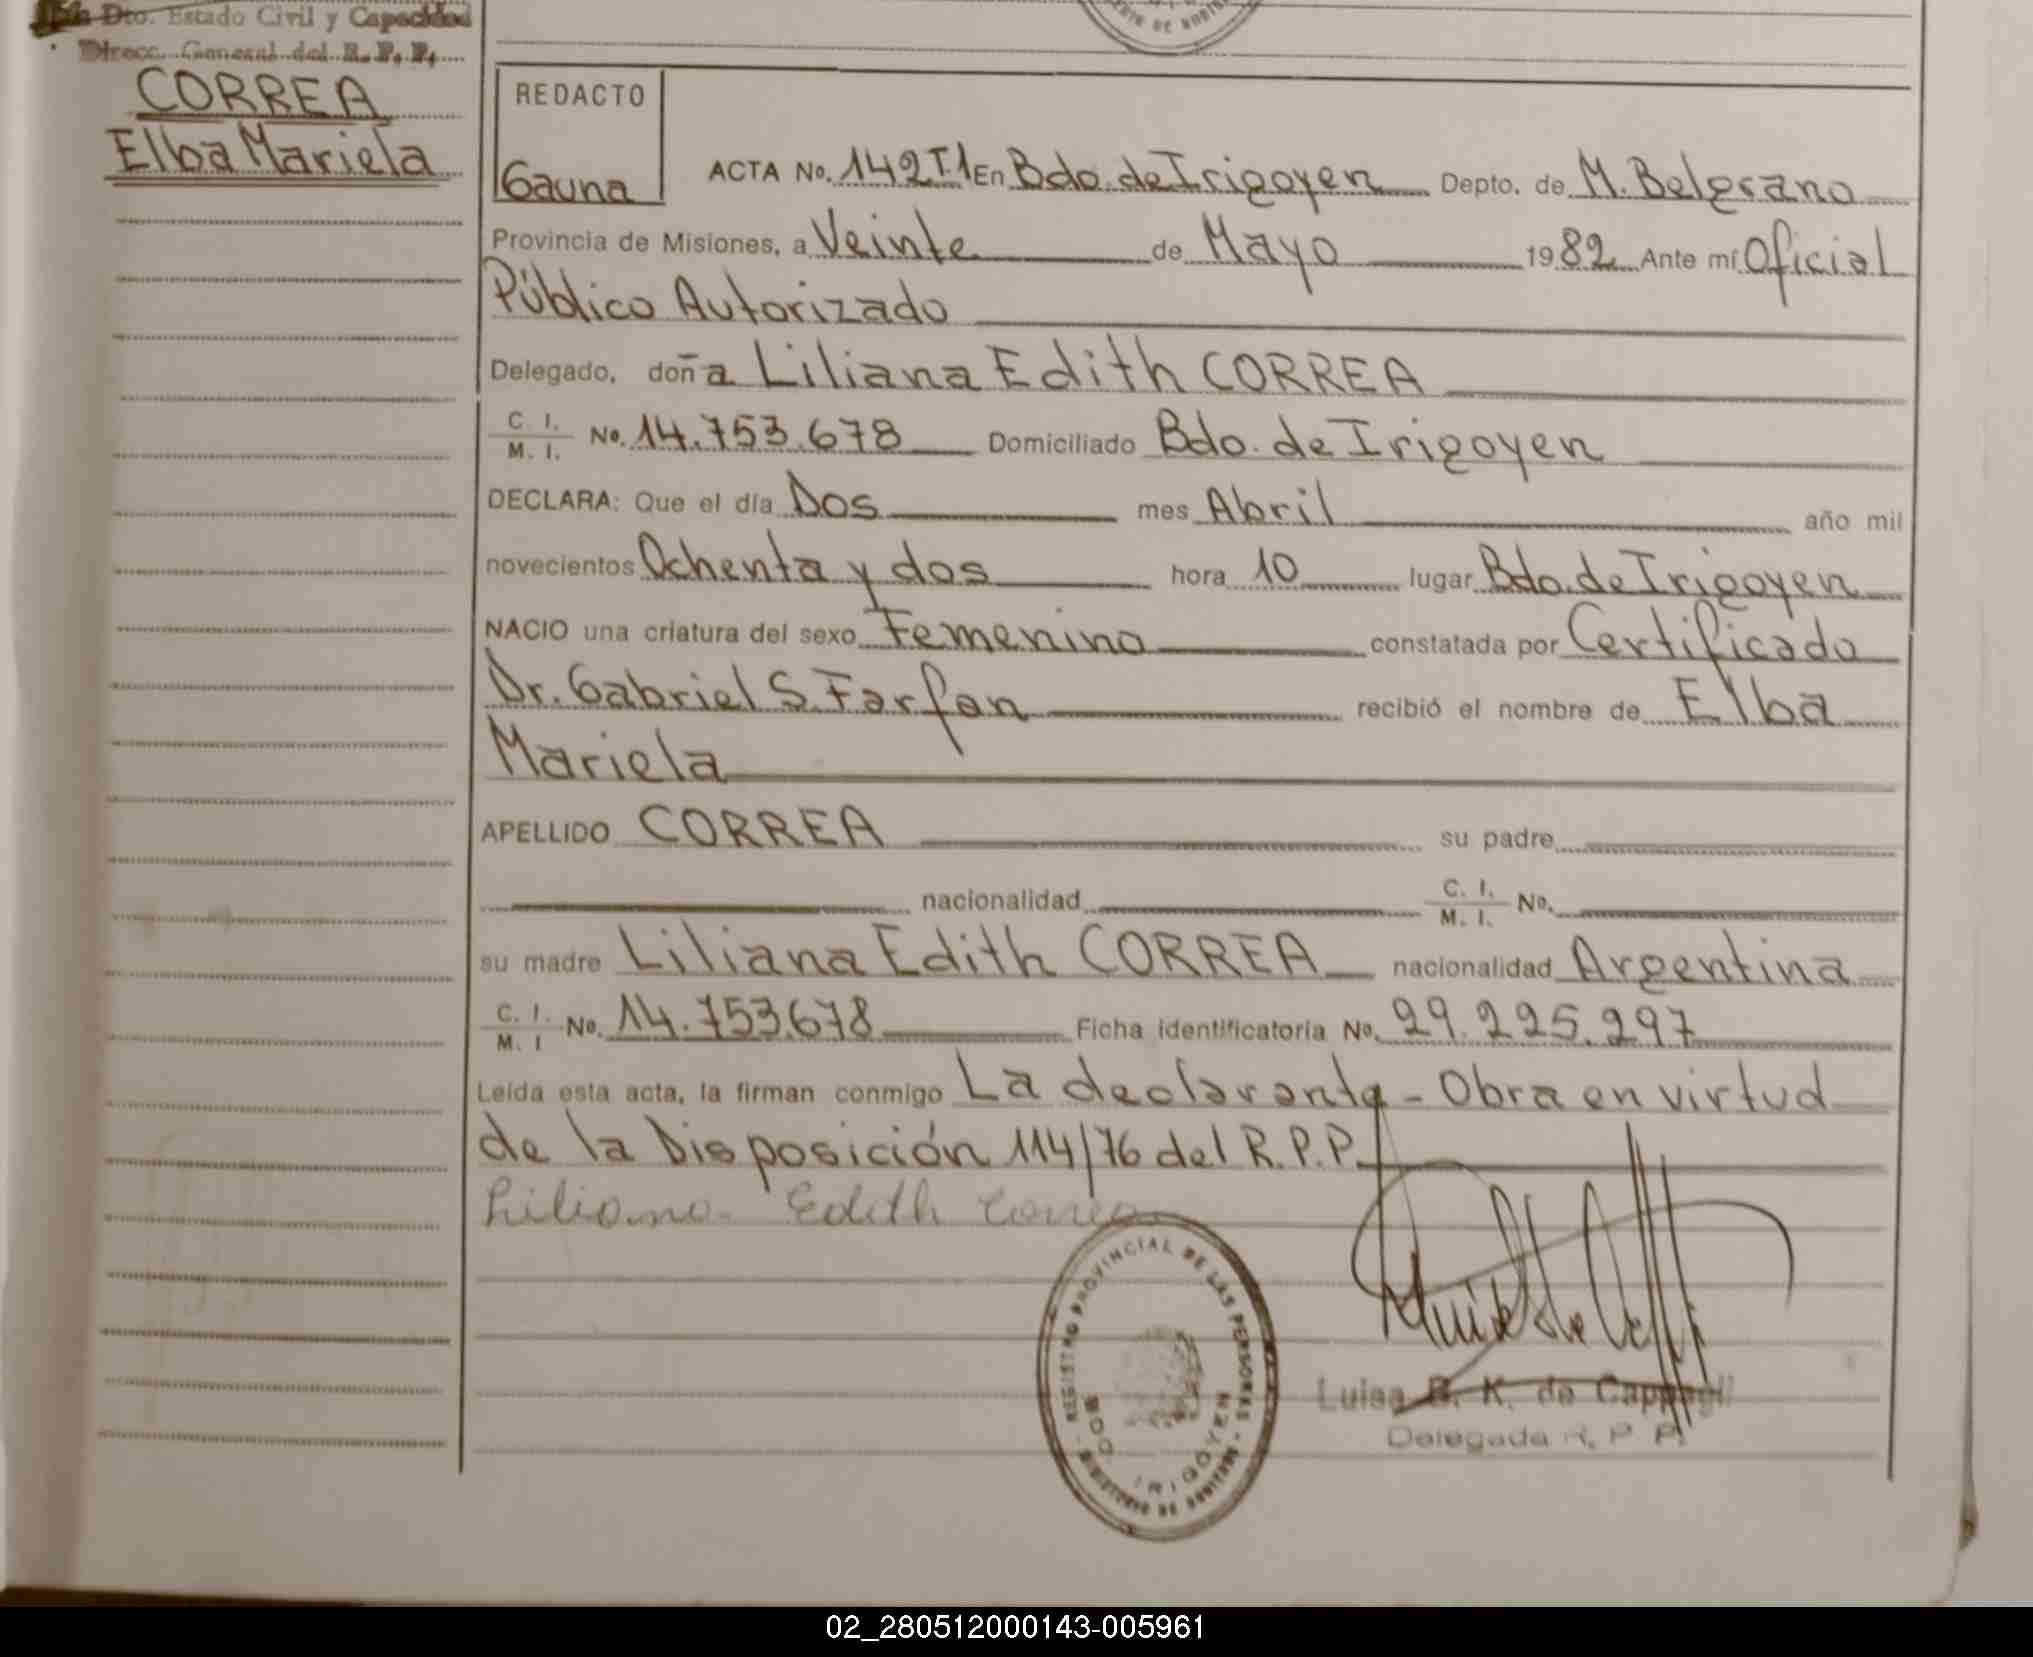 Dto. Estado Civil y Capacidad
Direcc. General del R. P. P.
CORREA
Elba Mariela
REDACTO
Gauna
ACTA No. 142T1 En Bdo. de Irigoyen Depto. de M. Belgrano
Provincia de Misiones, a Veinte de Mayo 1982 Ante mí Oficial
Público Autorizado
Delegado, doña Liliana Edith CORREA
C. I. / M. I. No. 14.753.678 Domiciliado Bdo. de Irigoyen
DECLARA: Que el día Dos mes Abril año mil
novecientos Ochenta y dos hora 10 lugar Bdo. de Irigoyen
NACIO una criatura del sexo Femenino constatada por Certificado
Dr. Gabriel S. Farfan recibió el nombre de Elba
Mariela
APELLIDO CORREA su padre
nacionalidad C. I. / M. I. No.
su madre Liliana Edith CORREA nacionalidad Argentina
C. I. / M. I No. 14.753.678 Ficha identificatoria No. 29.225.297
Leída esta acta, la firman conmigo La declarante - Obra en virtud
de la Disposición 114/76 del R.P.P.
Liliana Edith Correa
REGISTRO PROVINCIAL DE LAS PERSONAS - MINISTERIO DE GOBIERNO
BDO. IRIGOYEN
Luisa B. K. de
Delegada R. P. P.
02_280512000143-005961